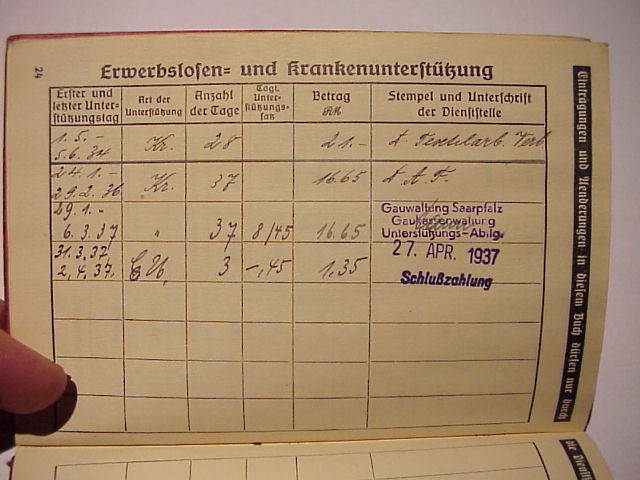 24
Erwerbslosen= und Krankenunterstützung
Erster und letzter Unter=stützungstag
Art der Unterstützung
Anzahl der Tage
Tägl. Unter=stützungs=satz
Betrag RM
Stempel und Unterschrift der Dienststelle
1. 5. – 5. 6. 34 Kr. 28 21.– D. Textilarb. Verb.
24. 1. – 29. 2. 36 Kr. 37 16.65 D. A. F.
29. 1. – 6. 3. 37 " 37 8/45 16.65
Gauwaltung Saarpfalz
Gaukassenwaltung
Unterstützungs-Abtlg.
31. 3. 37 2. 4. 37. 3 –,45 1.35
27. APR. 1937
Schlußzahlung
Eintragungen und Aenderungen in diesem Buch dürfen nur durch
die